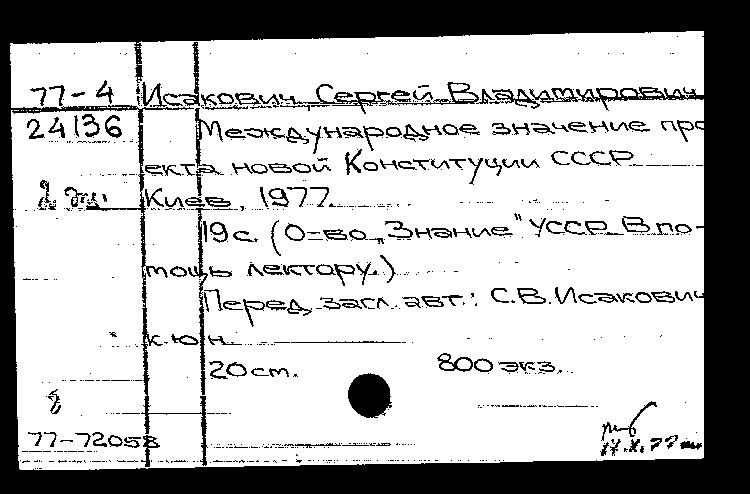 77-4 Исакович, Сергей Владимирович
24136 Международное значение про
екта новой Конституции СССР
2 экз. Киев, 1977.
19 с. (О-во „Знание" УССР. В по-
мощь лектору.)
Перед загл. авт.: С.В. Исакович
к.ю.н.
20 см. 800 экз.
77-72058
17.X.77